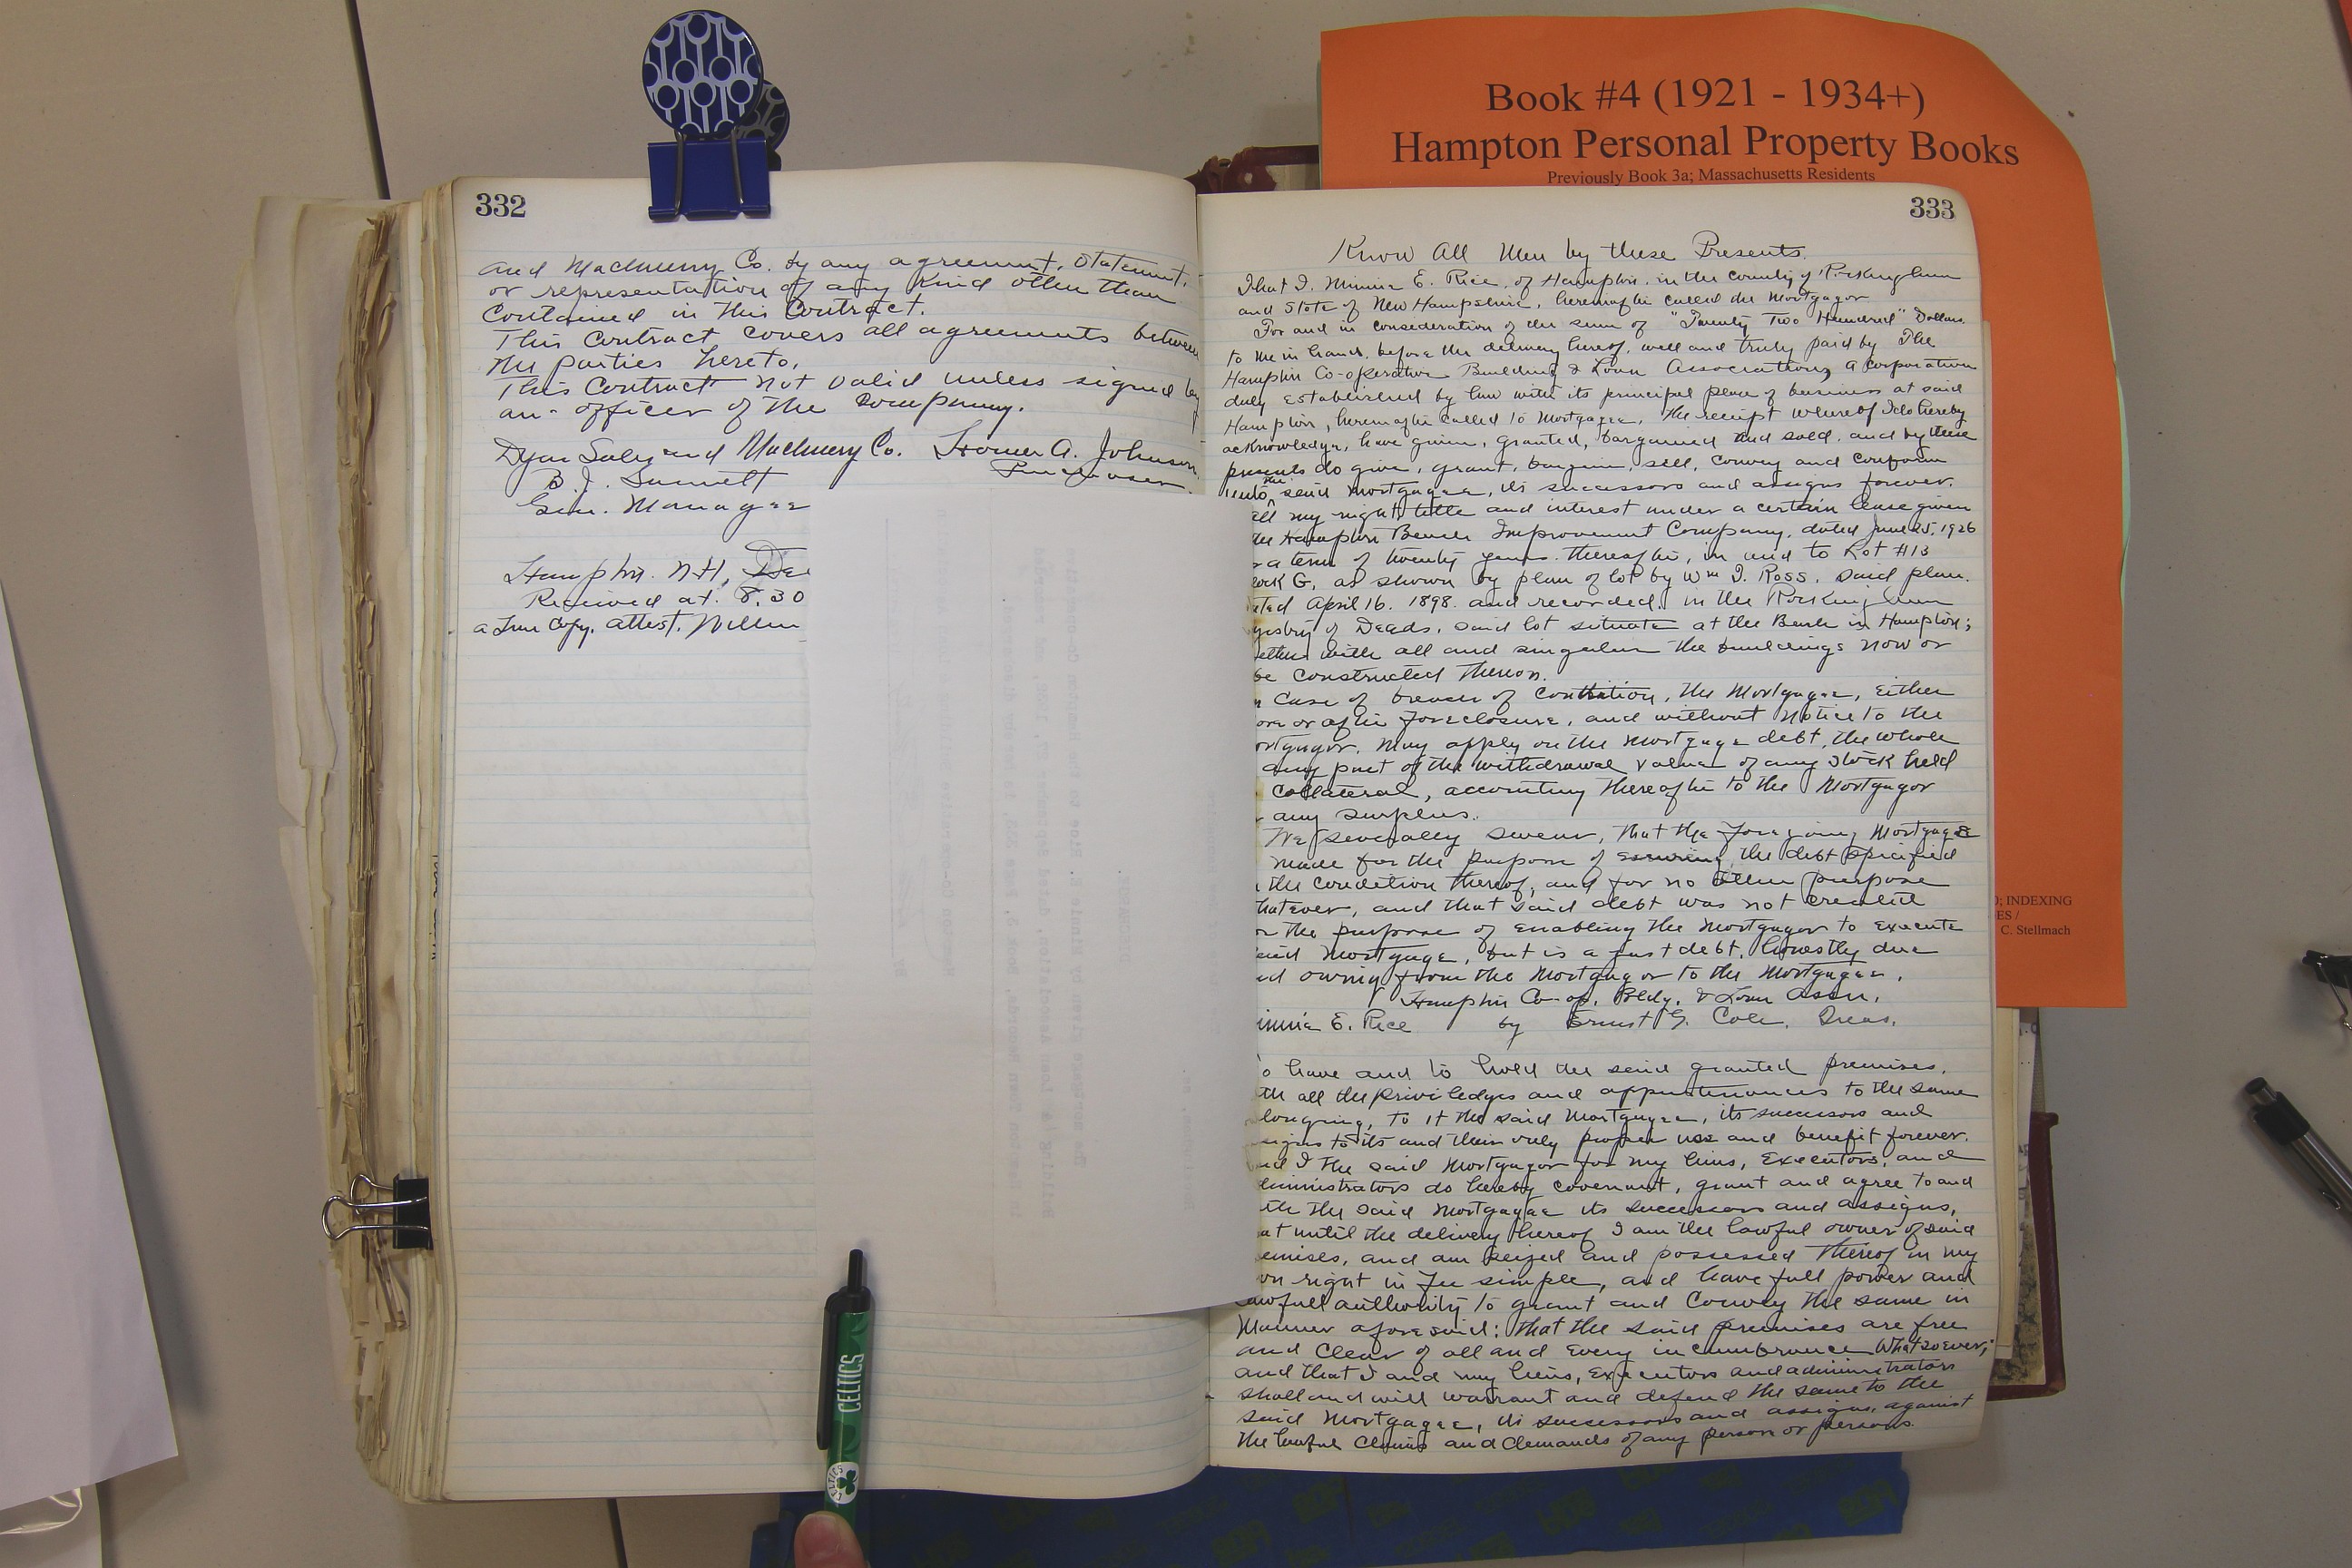 Book #4 (1921 - 1934+)
Hampton Personal Property Books
Previously Book 3a; Massachusetts Residents
332
and Machinery Co. by any agreement, statement,
or representation of any kind other than
contained in this Contract.
This Contract covers all agreements between
the parties hereto.
This Contract not valid unless signed by
an officer of the company.
Dyar Sales and Machinery Co. Homer A. Johnson
Purchaser.
B. J.
Gen. Manager
Hampton. N.H, De
Received at. 8.30
a true copy. attest. William
333
Know All Men by these Presents.
That I. Minnie E. Rice, of Hampton. in the county of Rockingham
and State of New Hampshire, hereinafter called the Mortgagor
For and in consideration of the sum of "Twenty Two Hundred" Dollars.
to me in hand. before the delivery hereof, well and truly paid by The
Hampton Co-operative Building & Loan Association, a corporation
duly established by law with its principal place of business at said
Hampton, hereinafter called to Mortgagee, the receipt whereof I do hereby
acknowledge, have given, granted, bargained and sold. and by these
presents do give, grant, bargain, sell, convey and confirm
unto the said Mortgagee, its successors and assigns forever.
all my right, title and interest under a certain lease given
the Hampton Beach Improvement Company, dated June 25, 1926
a term of twenty years. thereafter, in and to Lot #13
ock G, as shown by plan of lot by Wm T. Ross. said plan.
ated April 16. 1898. and recorded. in the Rockingham
gistry of Deeds. said lot situate at the Beach in Hampton;
ether with all and singular the buildings now or
be constructed thereon.
n case of breach of condition, the Mortgagee, either
ore or after foreclosure, and without notice to the
ortgagor. May apply on the mortgage debt, the whole
any part of the withdrawal value of any stock held
collateral, accounting thereafter to the Mortgagor
any surplus.
We severally swear, that the foregoing Mortgage
made for the purpose of securing the debt specified
the condition thereof, and for no other purpose
hatever, and that said debt was not created
or the purpose of enabling the Mortgagor to execute
said Mortgage, but is a just debt, honestly due
nd owing from the Mortgagor to the Mortgagee.
Hampton Co-op. Bldg. & Loan Assn.
innie E. Rice by Ernest G. Cole. Treas.
o have and to hold the said granted premises.
ith all the priviledges and appurtenances to the same
longing, to it the said Mortgagee, its successors and
signs to its and their only proper use and benefit forever.
nd I the said Mortgagor for my heirs, Executors, and
dministrators do hereby covenant, grant and agree to and
ith the said Mortgagee its successors and assigns,
at until the delivery hereof I am the lawful owner of said
emises, and am seized and possessed thereof in my
wn right in fee simple, and have full power and
awfull authority to grant and Convey the same in
Manner aforesaid; that the said premises are free
and Clear of all and Every incumbrance Whatsoever;
and that I and my heirs, executors and administrators
shall and will warrant and defend the same to the
said Mortgagee, its successors and assigns, against
the lawful claims and demands of any person or persons.
; INDEXING
ES /
C. Stellmach
CELTICS
CELTICS